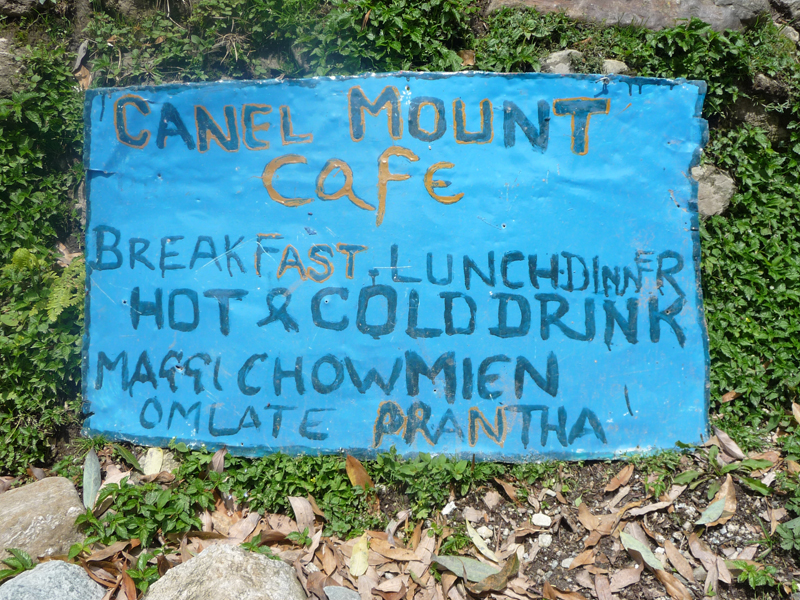 CANEL MOUNT
CAFE
BREAKFAST, LUNCH DINNER
HOT & COLD DRINK
MAGGI CHOWMIEN
OMLATE PRANTHA